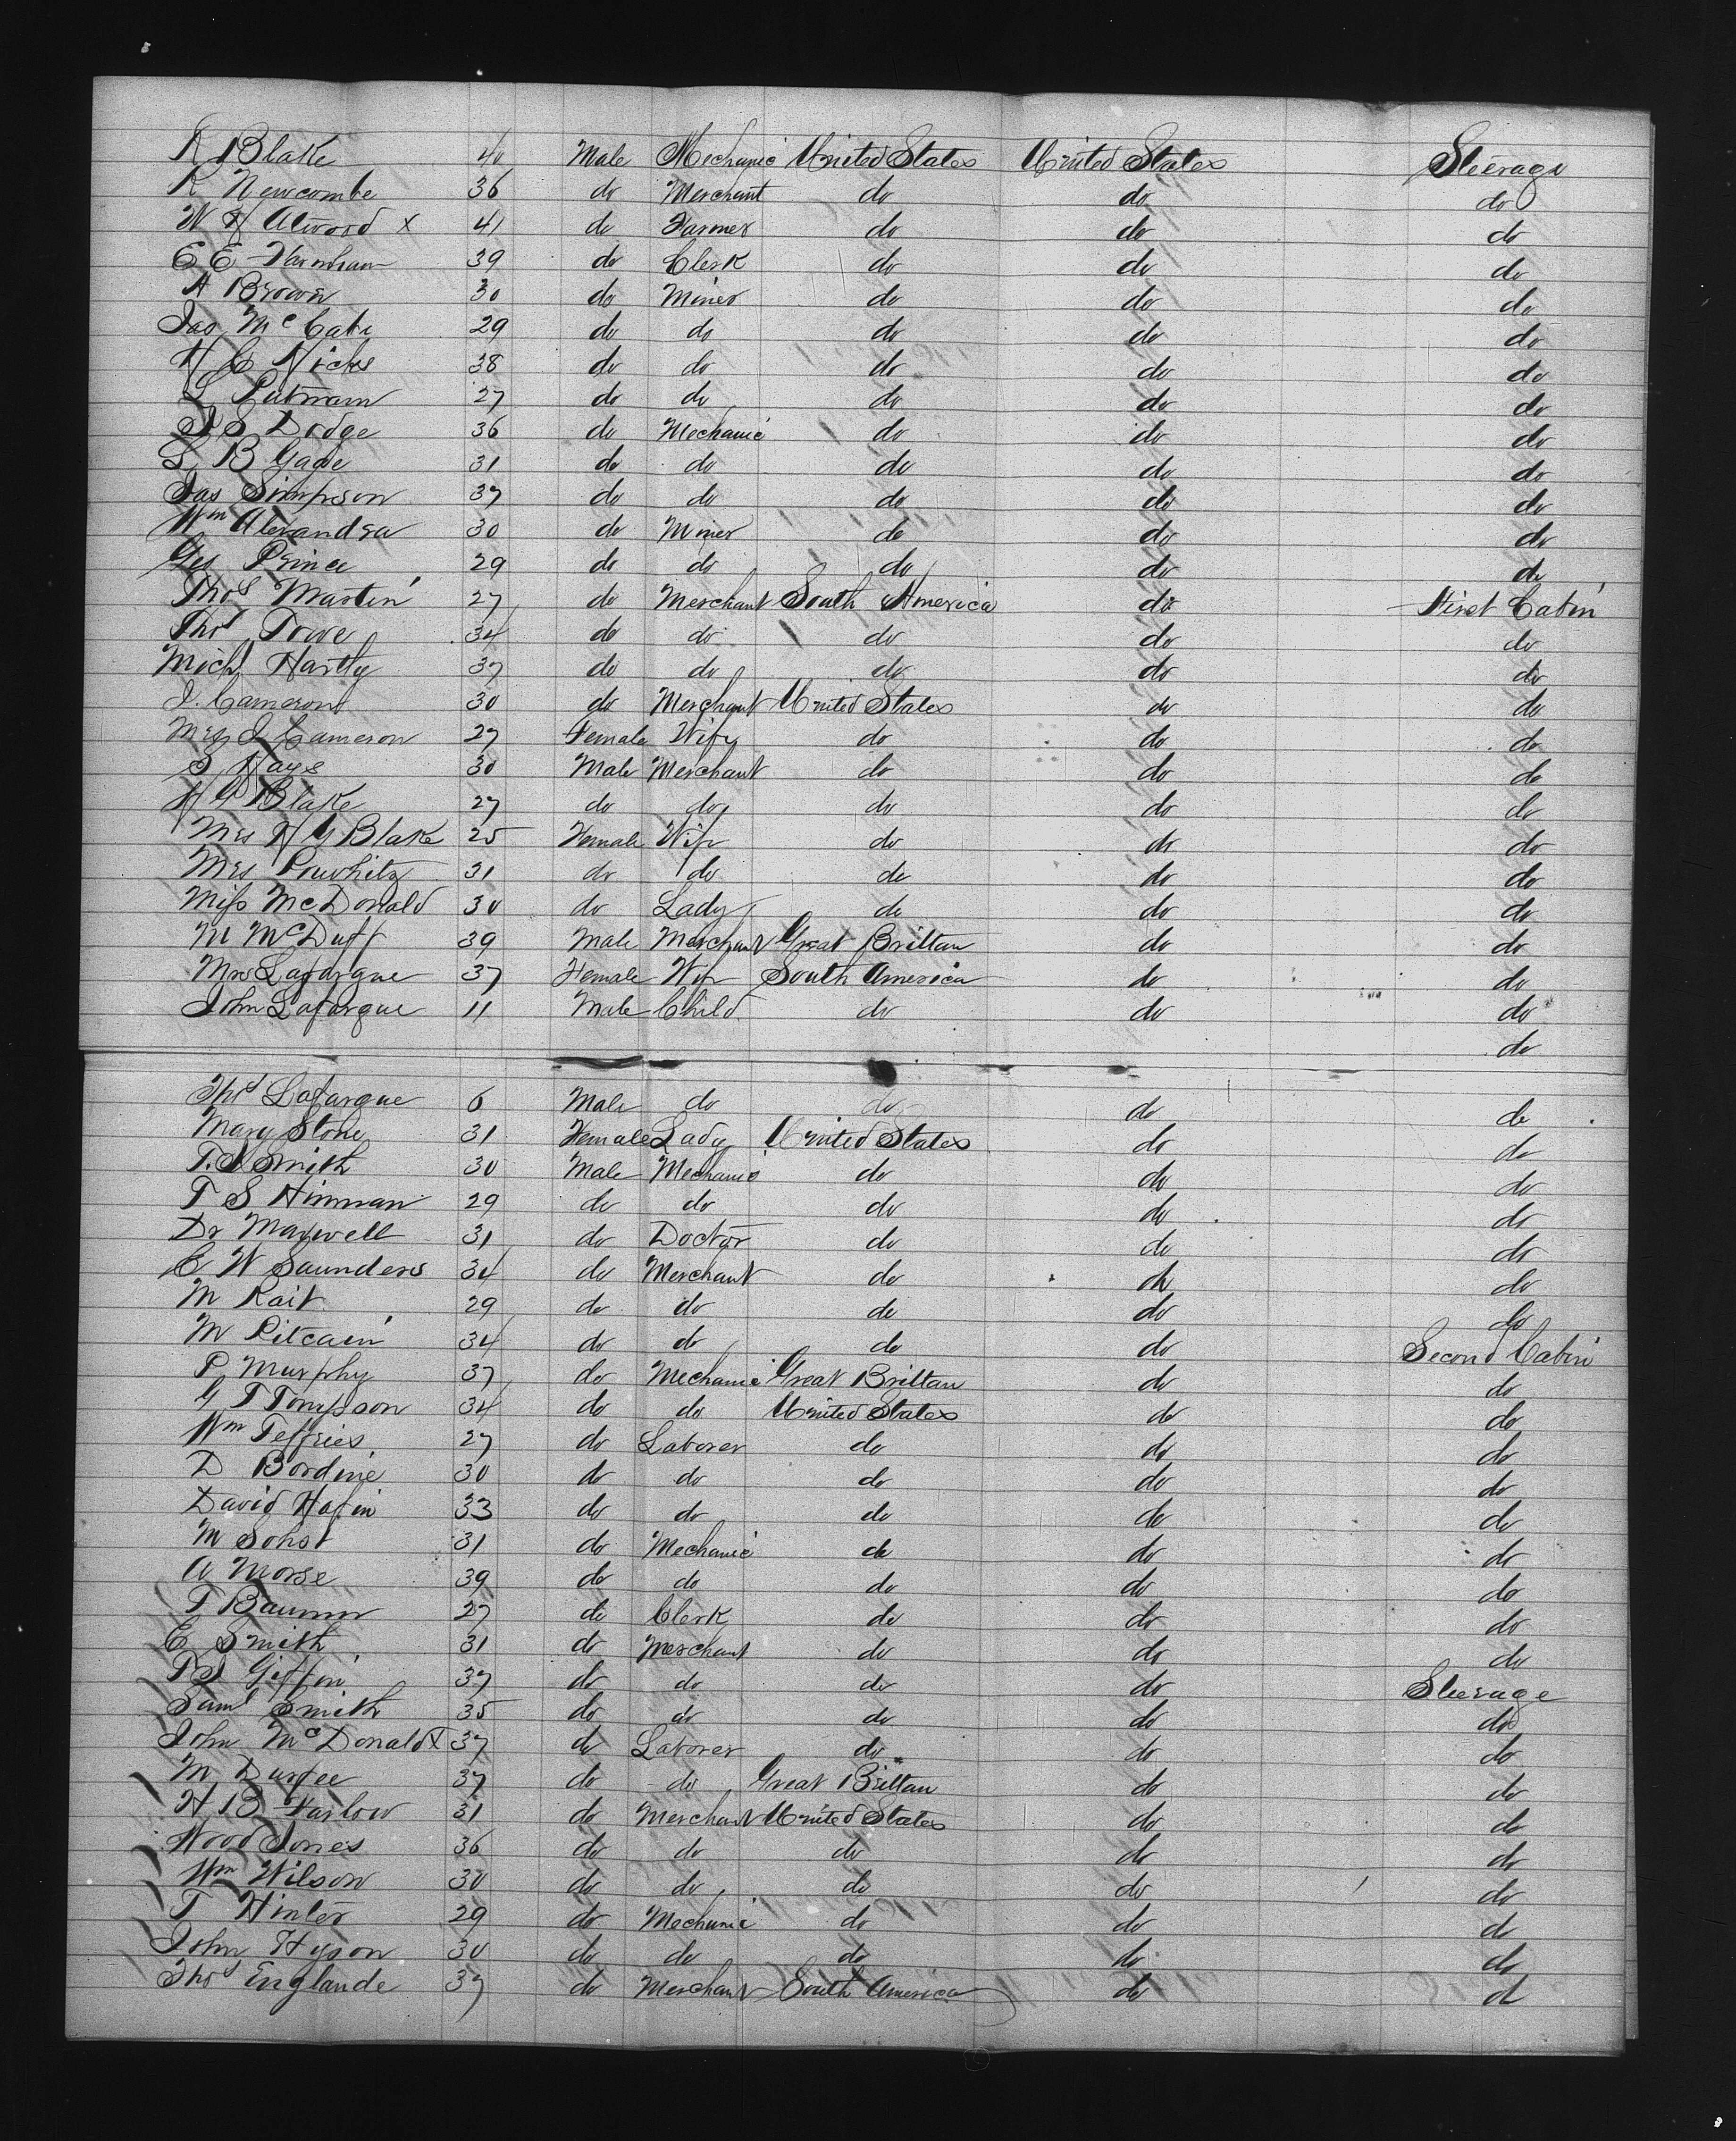 R Blake 40 Male Mechanic United States United States Steerage
R Newcombe 36 do Merchant do do do
W H Atwood x 41 do Farmer do do do
E E Farnham 39 do Clerk do do do
A Brown 30 do Miner do do do
Jas McCabe 29 do do do do do
H C Hicks 38 do do do do do
L Putnam 27 do do do do do
J S Dodge 36 do Mechanic do do do
S B Gage 31 do do do do do
Jas Simpson 37 do do do do do
Wm Alexandra 30 do Miner do do do
Geo Prince 29 do do do do do
Thos Martin 27 do Merchant South America do First Cabin
Thos Towe 34 do do do do do
Michl Hartly 37 do do do do do
J. Cameron 30 do Merchant United States do do
Mrs J Cameron 27 Female Wife do do do
S Hays 30 Male Merchant do do do
H Y Blake 27 do do do do do
Mrs H Y Blake 25 Female Wife do do do
Mrs 31 do do do do do
Miss McDonald 30 do Lady do do do
M McDuff 39 Male Merchant Great Brittan do do
Mrs Lafargue 37 Female Wife South America do do
John Lafargue 11 Male Child do do do
do
Thos Lafargue 6 Male do do do do
Mary Stone 31 Female Lady United States do do
T. J Smith 30 Male Mechanic do do do
T S Hinman 29 do do do do do
Dr Maxwell 31 do Doctor do do do
C W Saunders 34 do Merchant do do do
M Rait 29 do do do do do
M Pitcain 34 do do do do Second Cabin
P Murphy 37 do Mechanic Great Brittan do do
G T Tompson 34 do do United States do do
Wm Jeffries 27 do Laborer do do do
D Bordine 30 do do do do do
David Hafin 33 do do do do do
M Sohst 31 do Mechanic do do do
A Morse 39 do do do do do
T Baumm 27 do Clerk do do do
C Smith 31 do Merchant do do do
P J Giffin 37 do do do do Steerage
Saml Smith 35 do do do do do
John McDonald x 37 do Laborer do do do
M Durfee 37 do do Great Brittan do do
H B Farlow 31 do Merchant United States do do
Wood Jones 36 do do do do do
Wm Wilson 30 do do do do do
T Hinter 29 do Mechanic do do do
John Hyson 30 do do do do do
Thos Englande 37 do Merchant South America do do